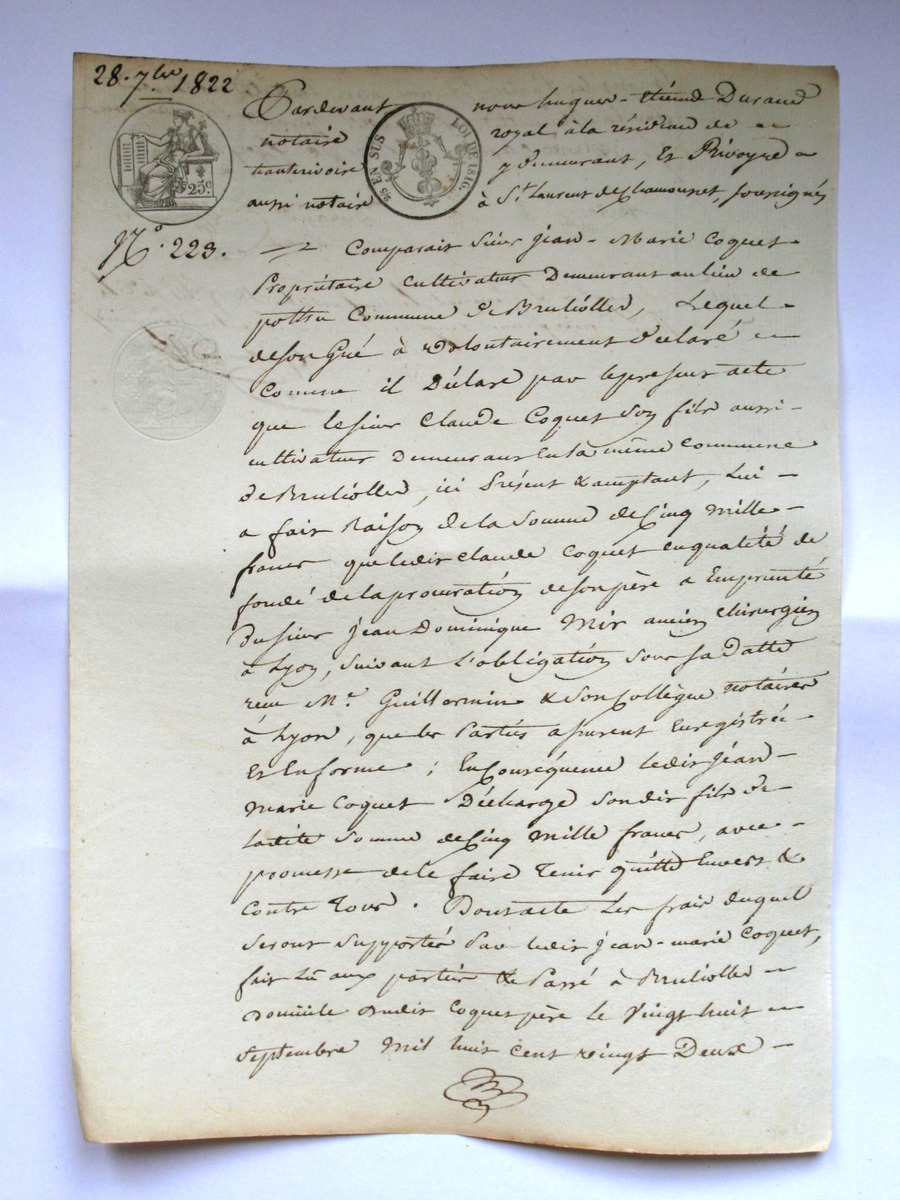 28. 7bre 1822
Pardevant nous hugues-étiennd Durand
notaire royal à la résidence de
hauterivoire y demeurant, Et Rivoyre
aussi notaire à St. Laurent de Chamousset, soussignés
25c.
25 EN SUS LOI DE 1816.
N°. 223.
Comparait Sieur Jean-Marie Coquet
Propriétaire cultivateur Demeurant au lieu de
Commune de Brulliolles, Lequel
de son Gré à volontairement déclaré
Comme il Déclare par le present acte
que le sieur Claude Coquet son fils aussi
cultivateur Demeurant en la même Commune
de Brulliolles, ici Présent & acceptant, Lui
a fait Raison de la somme de Cinq mille
francs que ledit Claude Coquet en qualité de
fondé de la procuration de son père a Emprunté
Du sieur Jean Dominique Mir ancien chirurgien
à Lyon, suivant L'obligation sous sa datte
reçu Mr. Guillermin & son Collègue notaires
à Lyon, que les Parties assurent Enregistrée
Et En forme ; En Conséquence ledit Jéan-
marie Coquet Décharge son dit fils de
ladite somme de Cinq mille francs, avec
promesse de le faire Tenir quitte Envers &
Contre Tous. Dont acte Les frais duquel
seront supportés Par ledit Jean-marie Coquet,
fait Lu aux parties & Passé à Brulliolles
domicile dudit Coquet père le vingt huit
septembre mil huit cent vingt Deux